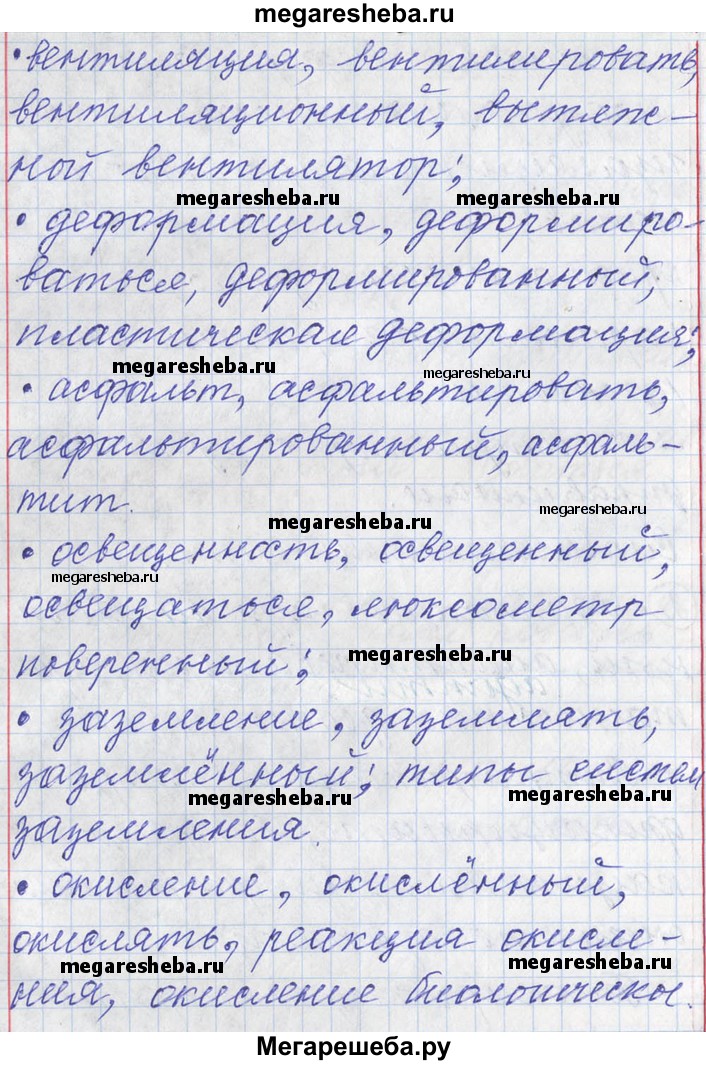 megaresheba.ru
• вентиляция, вентилировать,
вентиляционный, вытяж-
ной вентилятор;
megaresheba.ru megaresheba.ru
• деформация, деформиро-
ваться, деформированный;
пластическая деформация;
megaresheba.ru megaresheba.ru
• асфальт, асфальтировать,
асфальтированный, асфаль-
тит.
megaresheba.ru megaresheba.ru
• освещенность, освещенный,
megaresheba.ru
освещаться, люксометр
поверенный;
megaresheba.ru
• заземление, заземлять,
заземлённый; типы систем
megaresheba.ru megaresheba.ru
заземления.
• окисление, окислённый,
окислять, реакция окисле-
megaresheba.ru megaresheba.ru
ния, окисление биологическое.
Мегарешеба.ру